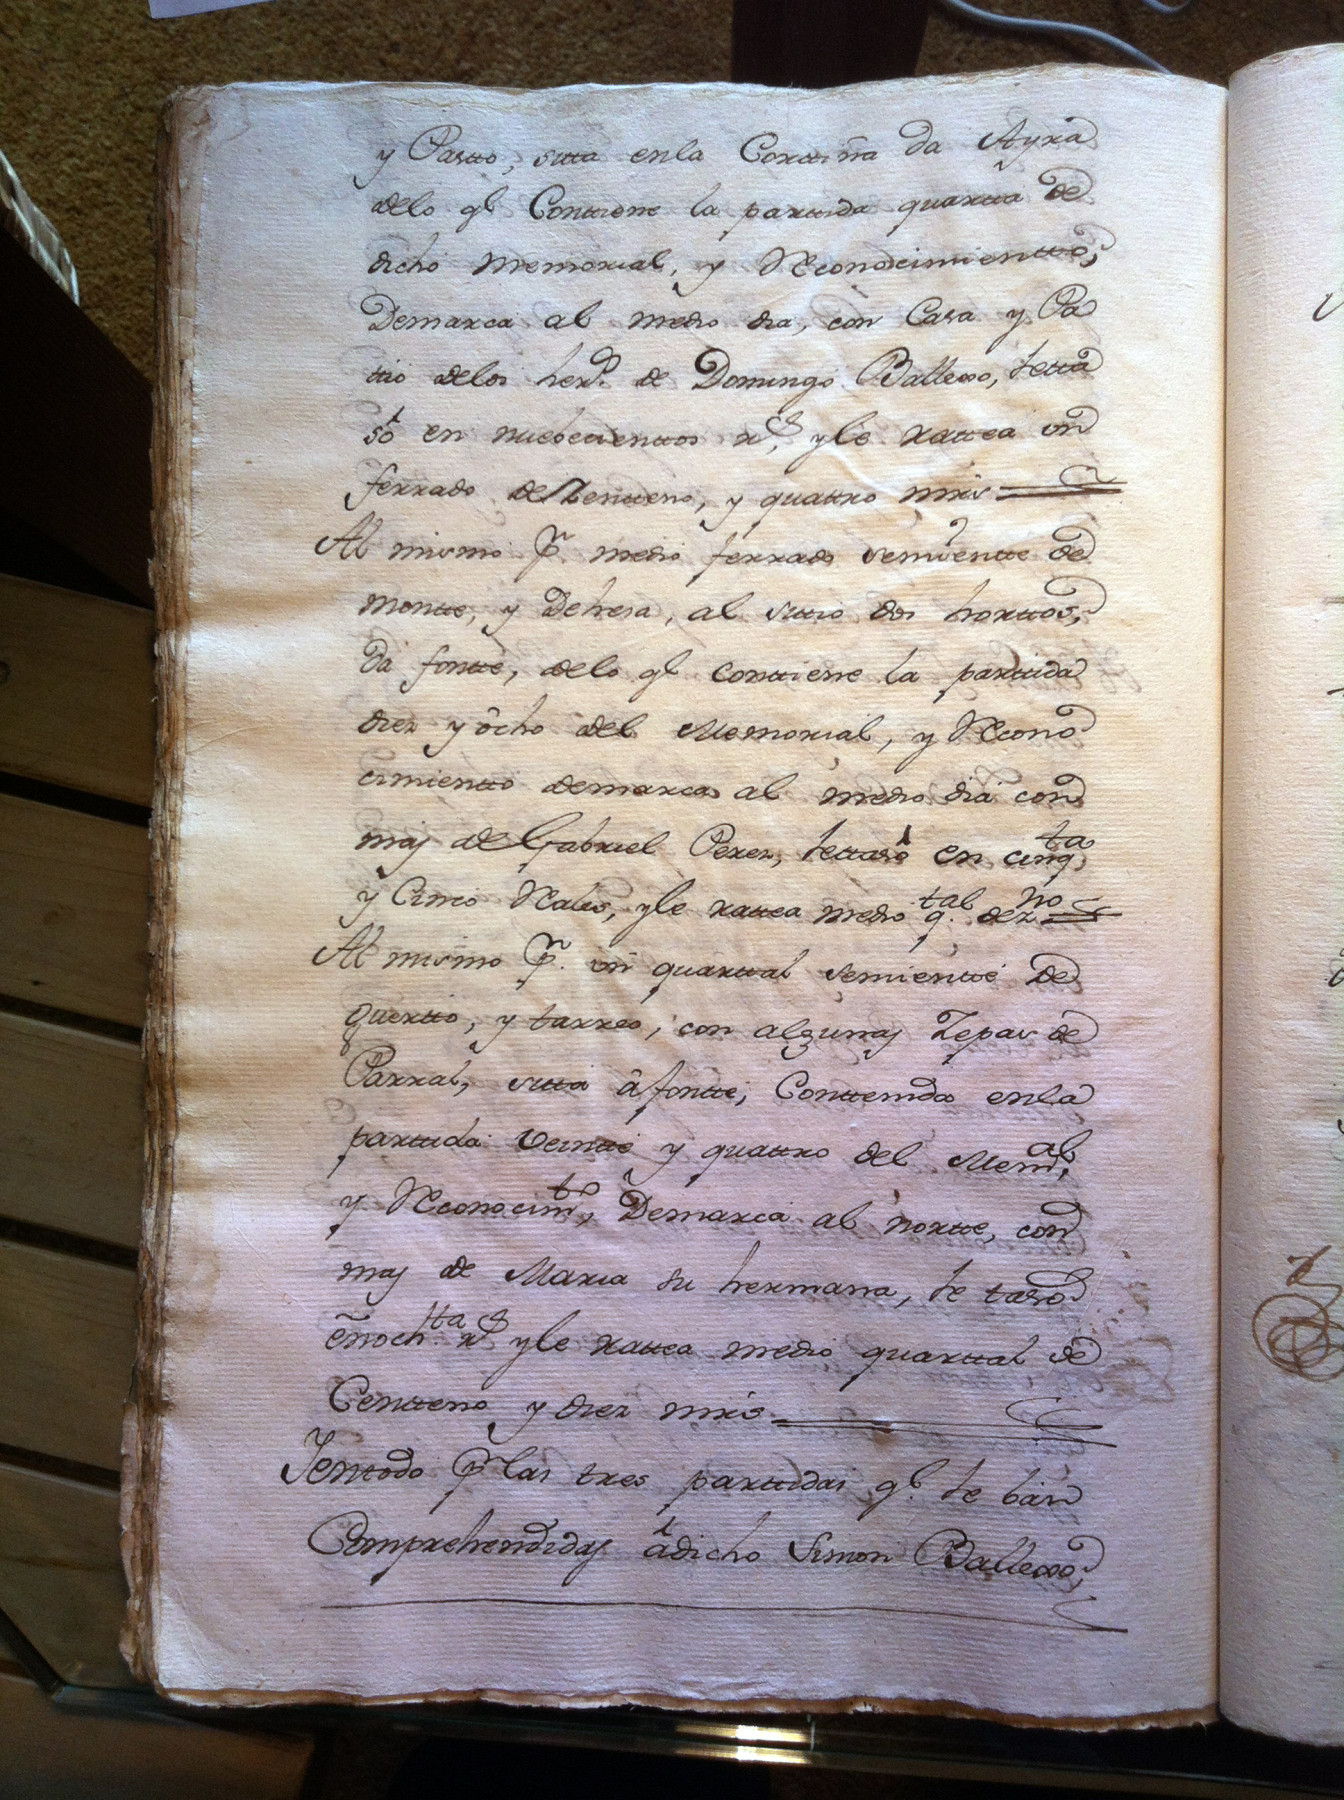 y Pastto, sitta enla Corttiña da Ayra
delo qᵉ Conttiene la parttida quartta de
dicho Memorial, y Reconoscimientto,
Demarca al medio dia, con Casa y Pa
ttio delos herᵈˢ de Domingo Ballesso, se tta
só en nuebecienttos rˢ, y le rattea un
ferrado de Zentteno, y quattro mrˢ
Al mismo Pʳ medio ferrado semientte de
montte, y Dehesa, al sittio dos horttos,
da fontte, delo qᵉ conttiene la parttida
diez y ôcho del Memorial, y Recono
cimientto demarca al medio dia con
mas de Gabriel Perez, se ttasó en cinqᵗᵃ
y Cinco Reales, y le rattea medio qᵗᵃˡ dezⁿᵒ
Al mismo Pʳ. un quarttal semientte de
Huertto, y tarreo, con algunas Zepas de
Parral, sitta âfontte, Conttenida enla
parttida veintte y quattro del Memᵃˡ,
y Reconocimᵗᵒ, Demarca al nortte, con
mas de Maria su hermana, se tasó
en ochᵗᵗᵃ rˢ y le rattea medio quarttal de
Centteno y diez mrˢ
Y enttodo Pʳ las tres parttidas qᵉ. se ban
Comprehendidas âdicho Simon Ballesso,